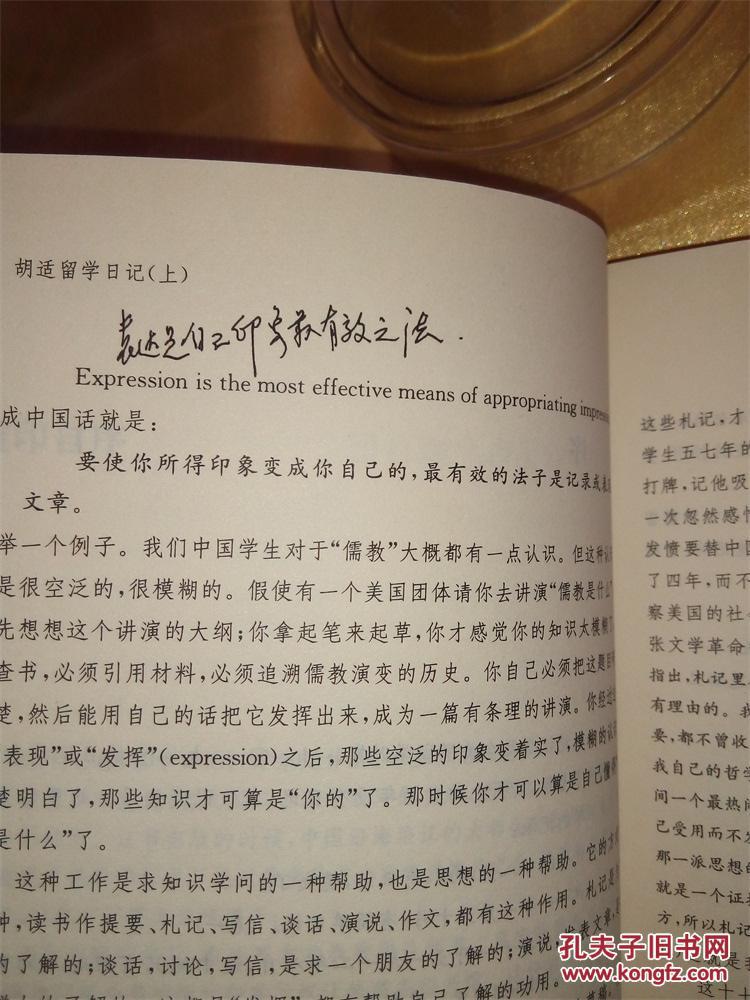 胡适留学日记(上)
表达是自己印象最有效之法.
Expression is the most effective means of appropriating
成中国话就是:
要使你所得印象变成你自己的,最有效的法子是记录或表
文章。
举一个例子。我们中国学生对于“儒教”大概都有一点认识。但这种认
是很空泛的,很模糊的。假使有一个美国团体请你去讲演“儒教是什么
先想想这个讲演的大纲;你拿起笔来起草,你才感觉你的知识太模糊了
查书,必须引用材料,必须追溯儒教演变的历史。你自己必须把这题目
楚,然后能用自己的话把它发挥出来,成为一篇有条理的讲演。你经过
表现”或“发挥”(expression)之后,那些空泛的印象变着实了,模糊的认
楚明白了,那些知识才可算是“你的”了。那时候你才可以算是自己懂
是什么”了。
这种工作是求知识学问的一种帮助,也是思想的一种帮助。它的方
种,读书作提要、札记、写信、谈话、演说、作文,都有这种作用。札记是
的了解的;谈话,讨论,写信,是求一个朋友的了解的;演说,发表文章,是
都有帮助自己了解的功用。
这些札记,才
学生五七年的
打牌,记他吸
一次忽然感
发愤要替中国
了四年,而不
察美国的社
张文学革命
指出,札记里
有理由的。我
要,都不曾收
我自己的哲
间一个最热
己受用而不
那一派思想的
就是一个证
方,所以札记
这十
孔夫子旧书网
www.kongfz.com